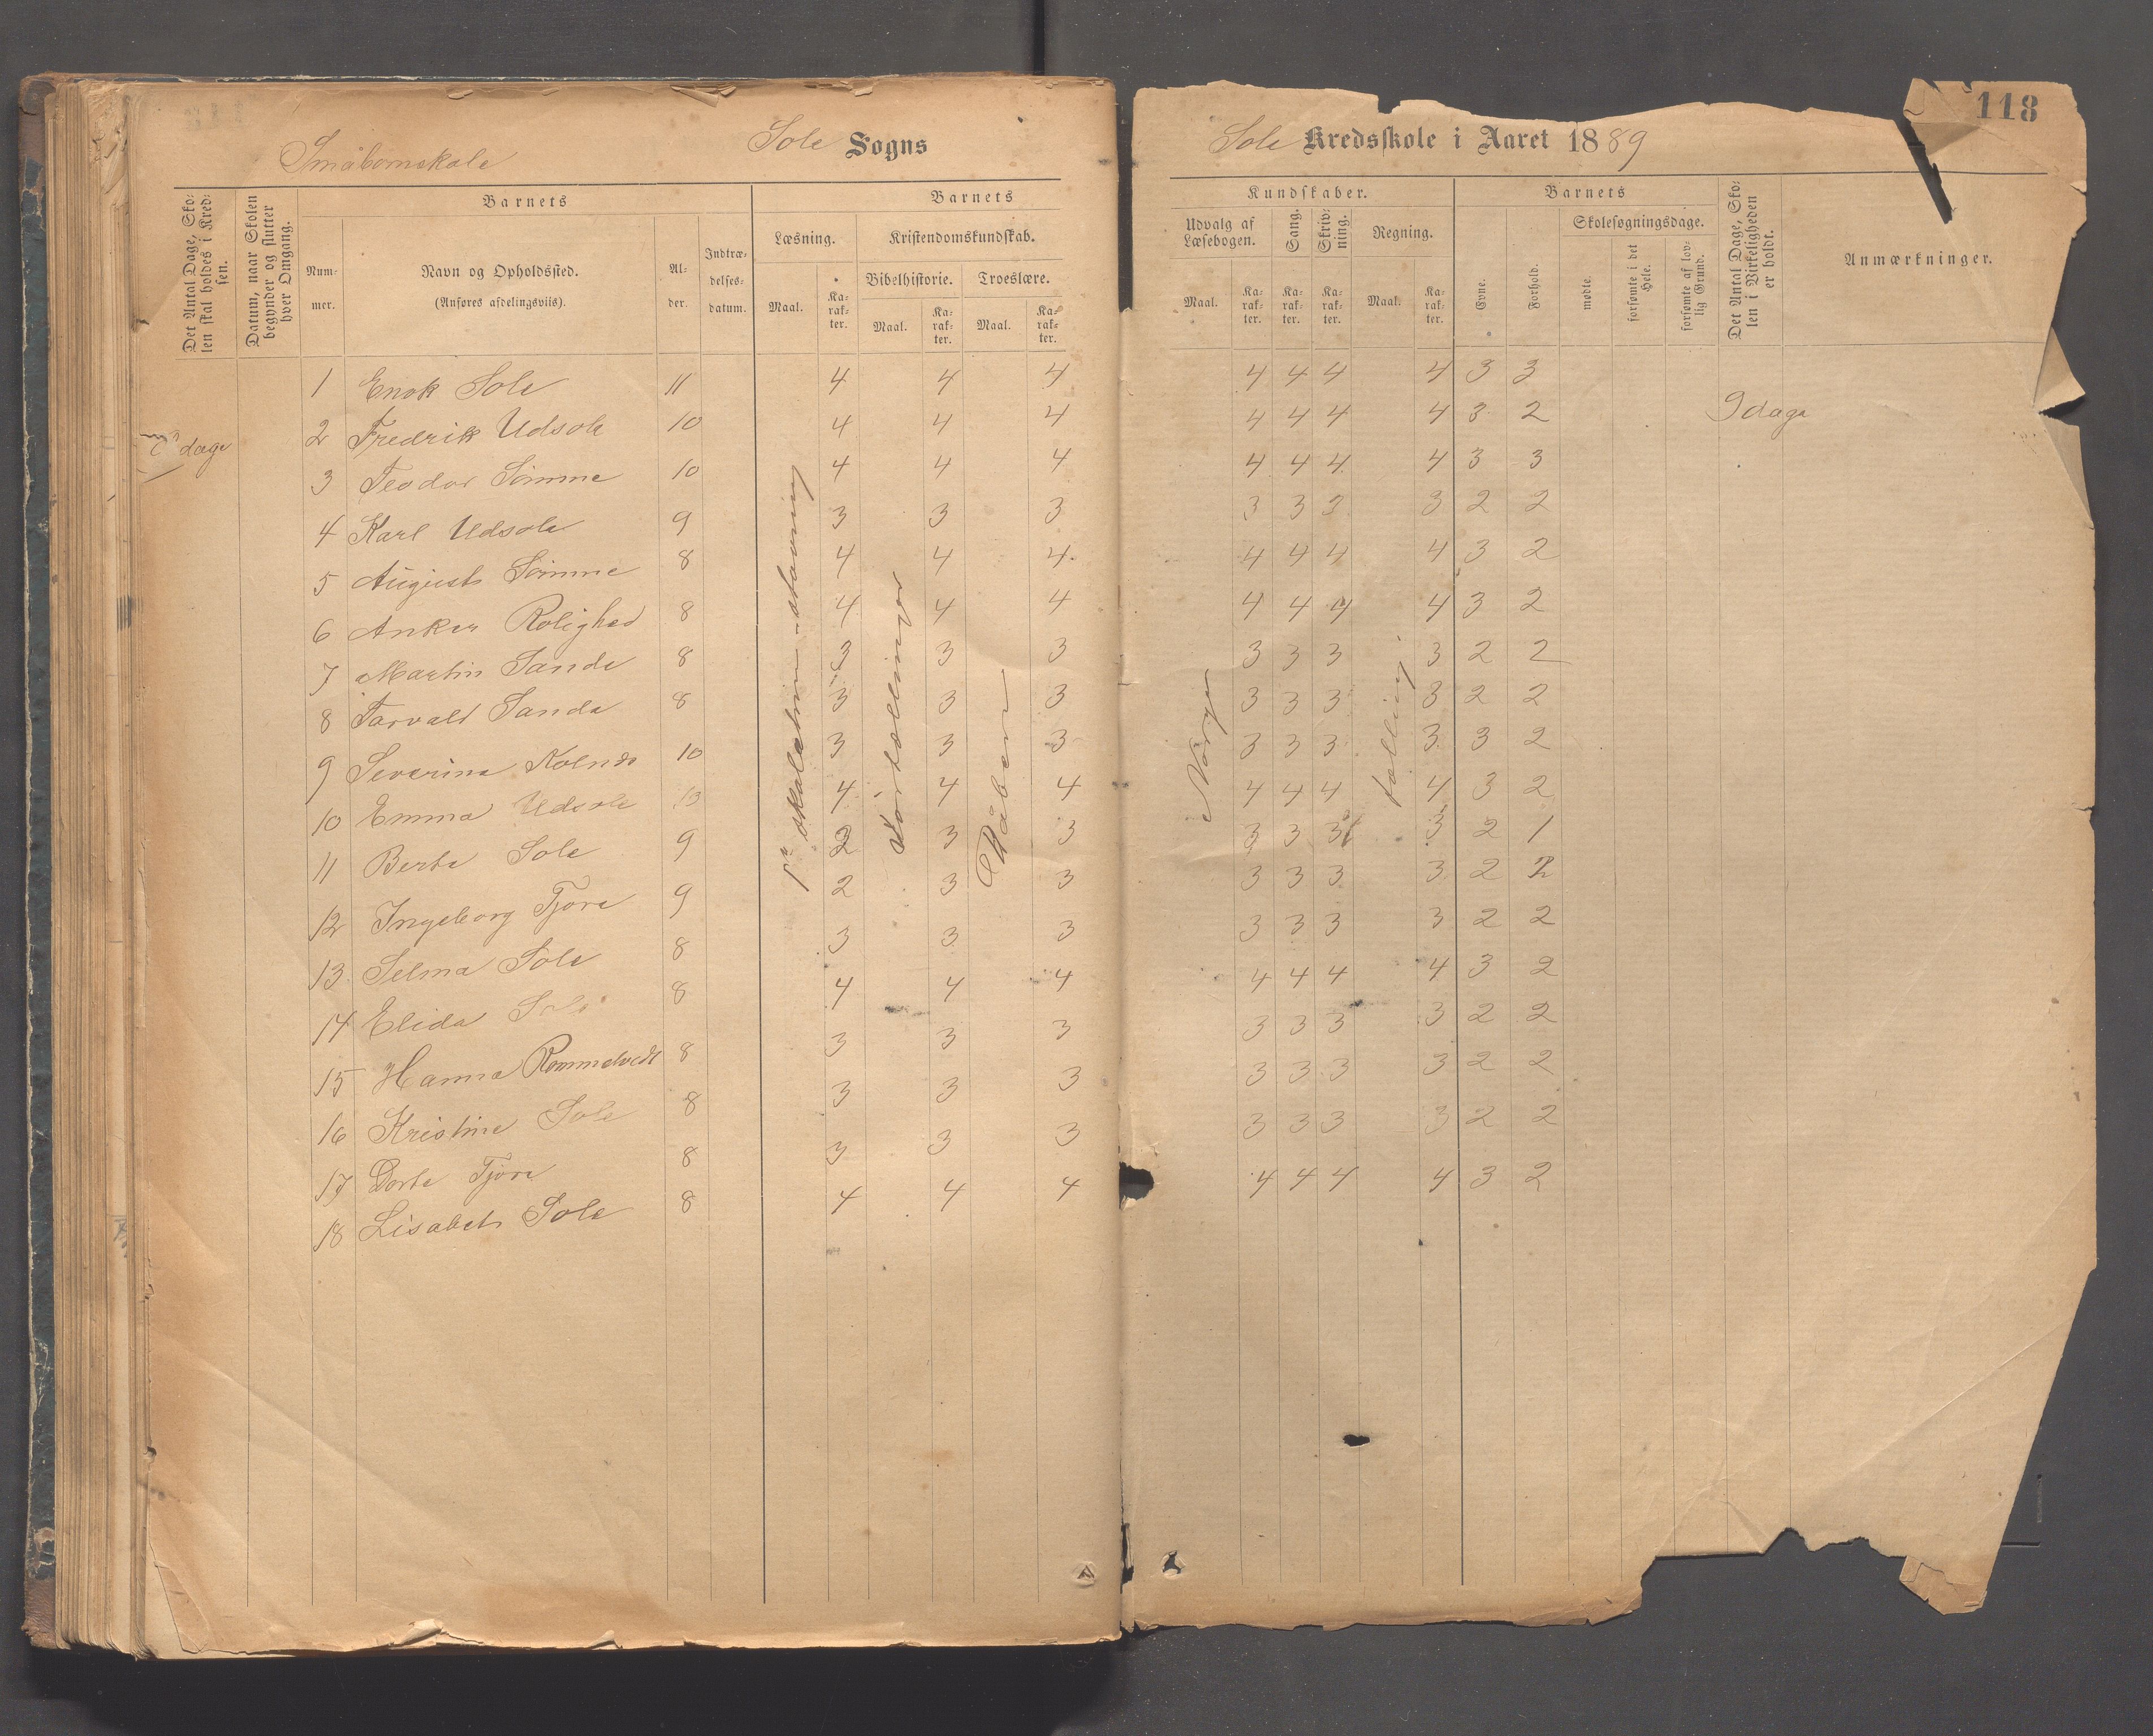 118
Småbornskole
Sole Sogns
Sole Kredsskole i Aaret 1889
Det Antal Dage, Skolen skal holdes i Kredsen.
Datum, naar Skolen begynder og slutter hver Omgang.
Barnets
Nummer.
Navn og Opholdssted.
(Anføres afdelingsviis).
Alder.
Indtrædelsesdatum.
Barnets
Læsning.
Maal.
Karakter.
Kristendomskundskab.
Bibelhistorie.
Maal.
Karakter.
Troeslære.
Maal.
Karakter.
Kundskaber.
Udvalg af Læsebogen.
Maal.
Karakter.
Sang.
Karakter.
Skrivning.
Karakter.
Regning.
Maal.
Karakter.
Barnets
Evne.
Forhold.
Skolesøgningsdage.
mødte.
forsømte i det Hele.
forsømte af lovlig Grund.
Det Antal Dage, Skolen i Virkeligheden er holdt.
Anmærkninger.
1 Enok Sole 11 4 4 4 4 4 4 4 3 3
2 Fredrik Udsole 10 4 4 4 4 4 4 4 3 2 9 dage
dage
3 Teodor Sømme 10 4 4 4 4 4 4 4 3 3
4 Karl Udsole 9 3 3 3 3 3 3 3 2 2
5 August Sømme 8 4 4 4 4 4 4 4 3 2
6 Anker Rolighed 8 4 4 4 4 4 4 4 3 2
7 Martin Sande 8 3 3 3 3 3 3 3 2 2
8 Tarvald Sande 8 3 3 3 3 3 3 3 2 2
9 Severine 10 3 3 3 3 3 3 3 3 2
10 Emma Udsole 10 4 4 4 4 4 4 4 3 2
11 Berta Sole 9 2 3 3 3 3 3 3 2 1
12 Ingeborg Tjora 9 2 3 3 3 3 3 3 2 2
13 Selma Sole 8 3 3 3 3 3 3 3 2 2
14 Elida Sole 8 4 4 4 4 4 4 4 3 2
15 Hanna Rommetvedt 8 3 3 3 3 3 3 3 2 2
16 Kristine Sole 8 3 3 3 3 3 3 3 2 2
17 Dorte Tjora 8 3 3 3 3 3 3 3 2 2
18 Lisabet Sole 8 4 4 4 4 4 4 4 3 2
stavning
fortællinger
Råben
Norge
tælling